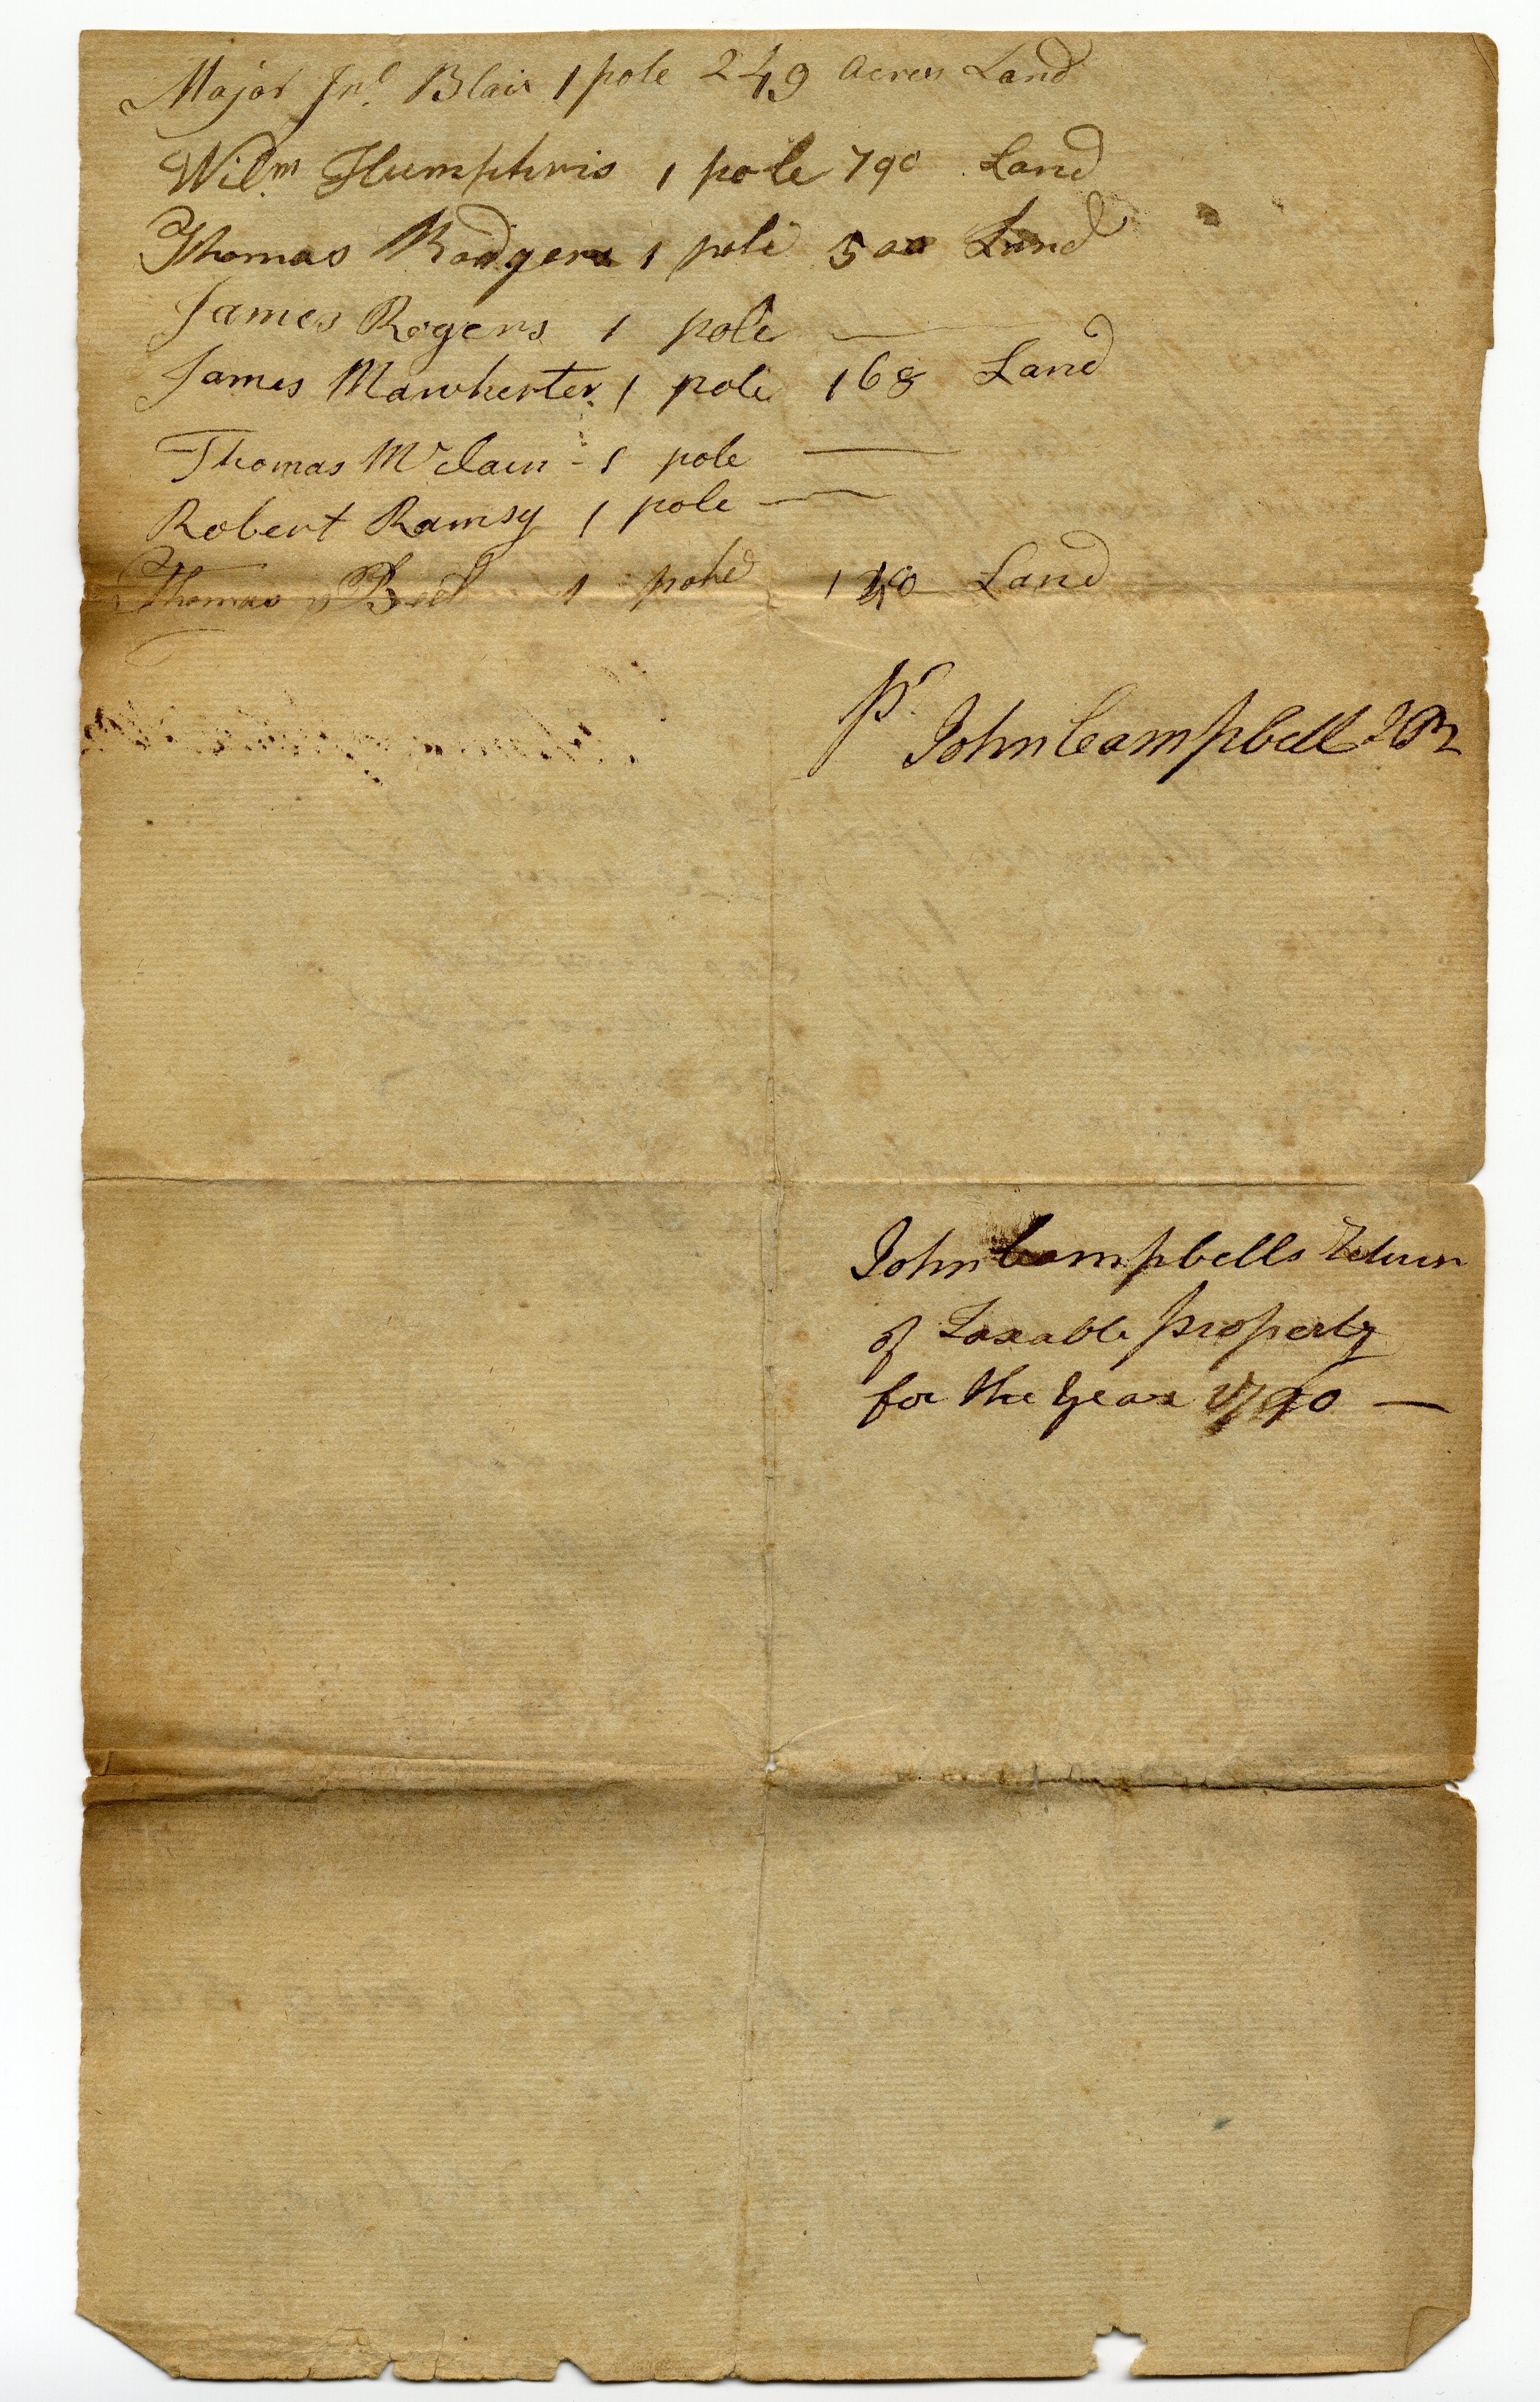 Major Jno. Blair 1 pole 249 acres Land
Wilm Humphris 1 pole 790 Land
Thomas Rodgers 1 pole 500 Land
James Rogers 1 pole —
James Mawherter 1 pole 168 Land
Thomas Mcclain - 1 pole —
Robert Ramsy 1 pole —
Thomas 1 pole Land
pr
John Campbell
John Campbells Return
of Taxable property
for the year 1790 —